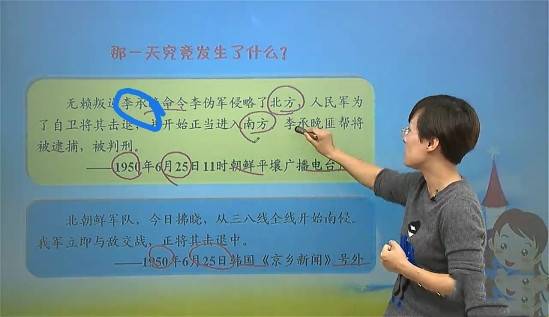 那一天究竟发生了什么？
无赖叛逆李承晚命令李伪军侵略了北方，人民军为
了自卫将其击退，并开始正当进入南方。李承晚匪帮将
被逮捕，被判刑。
——1950年6月25日11时朝鲜平壤广播电台
北朝鲜军队，今日拂晓，从三八线全线开始南侵。
我军立即与敌交战，正将其击退中。
——1950年6月25日韩国《京乡新闻》号外